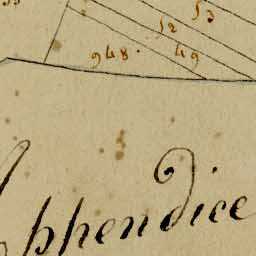 53
52
948. 49
Appendice